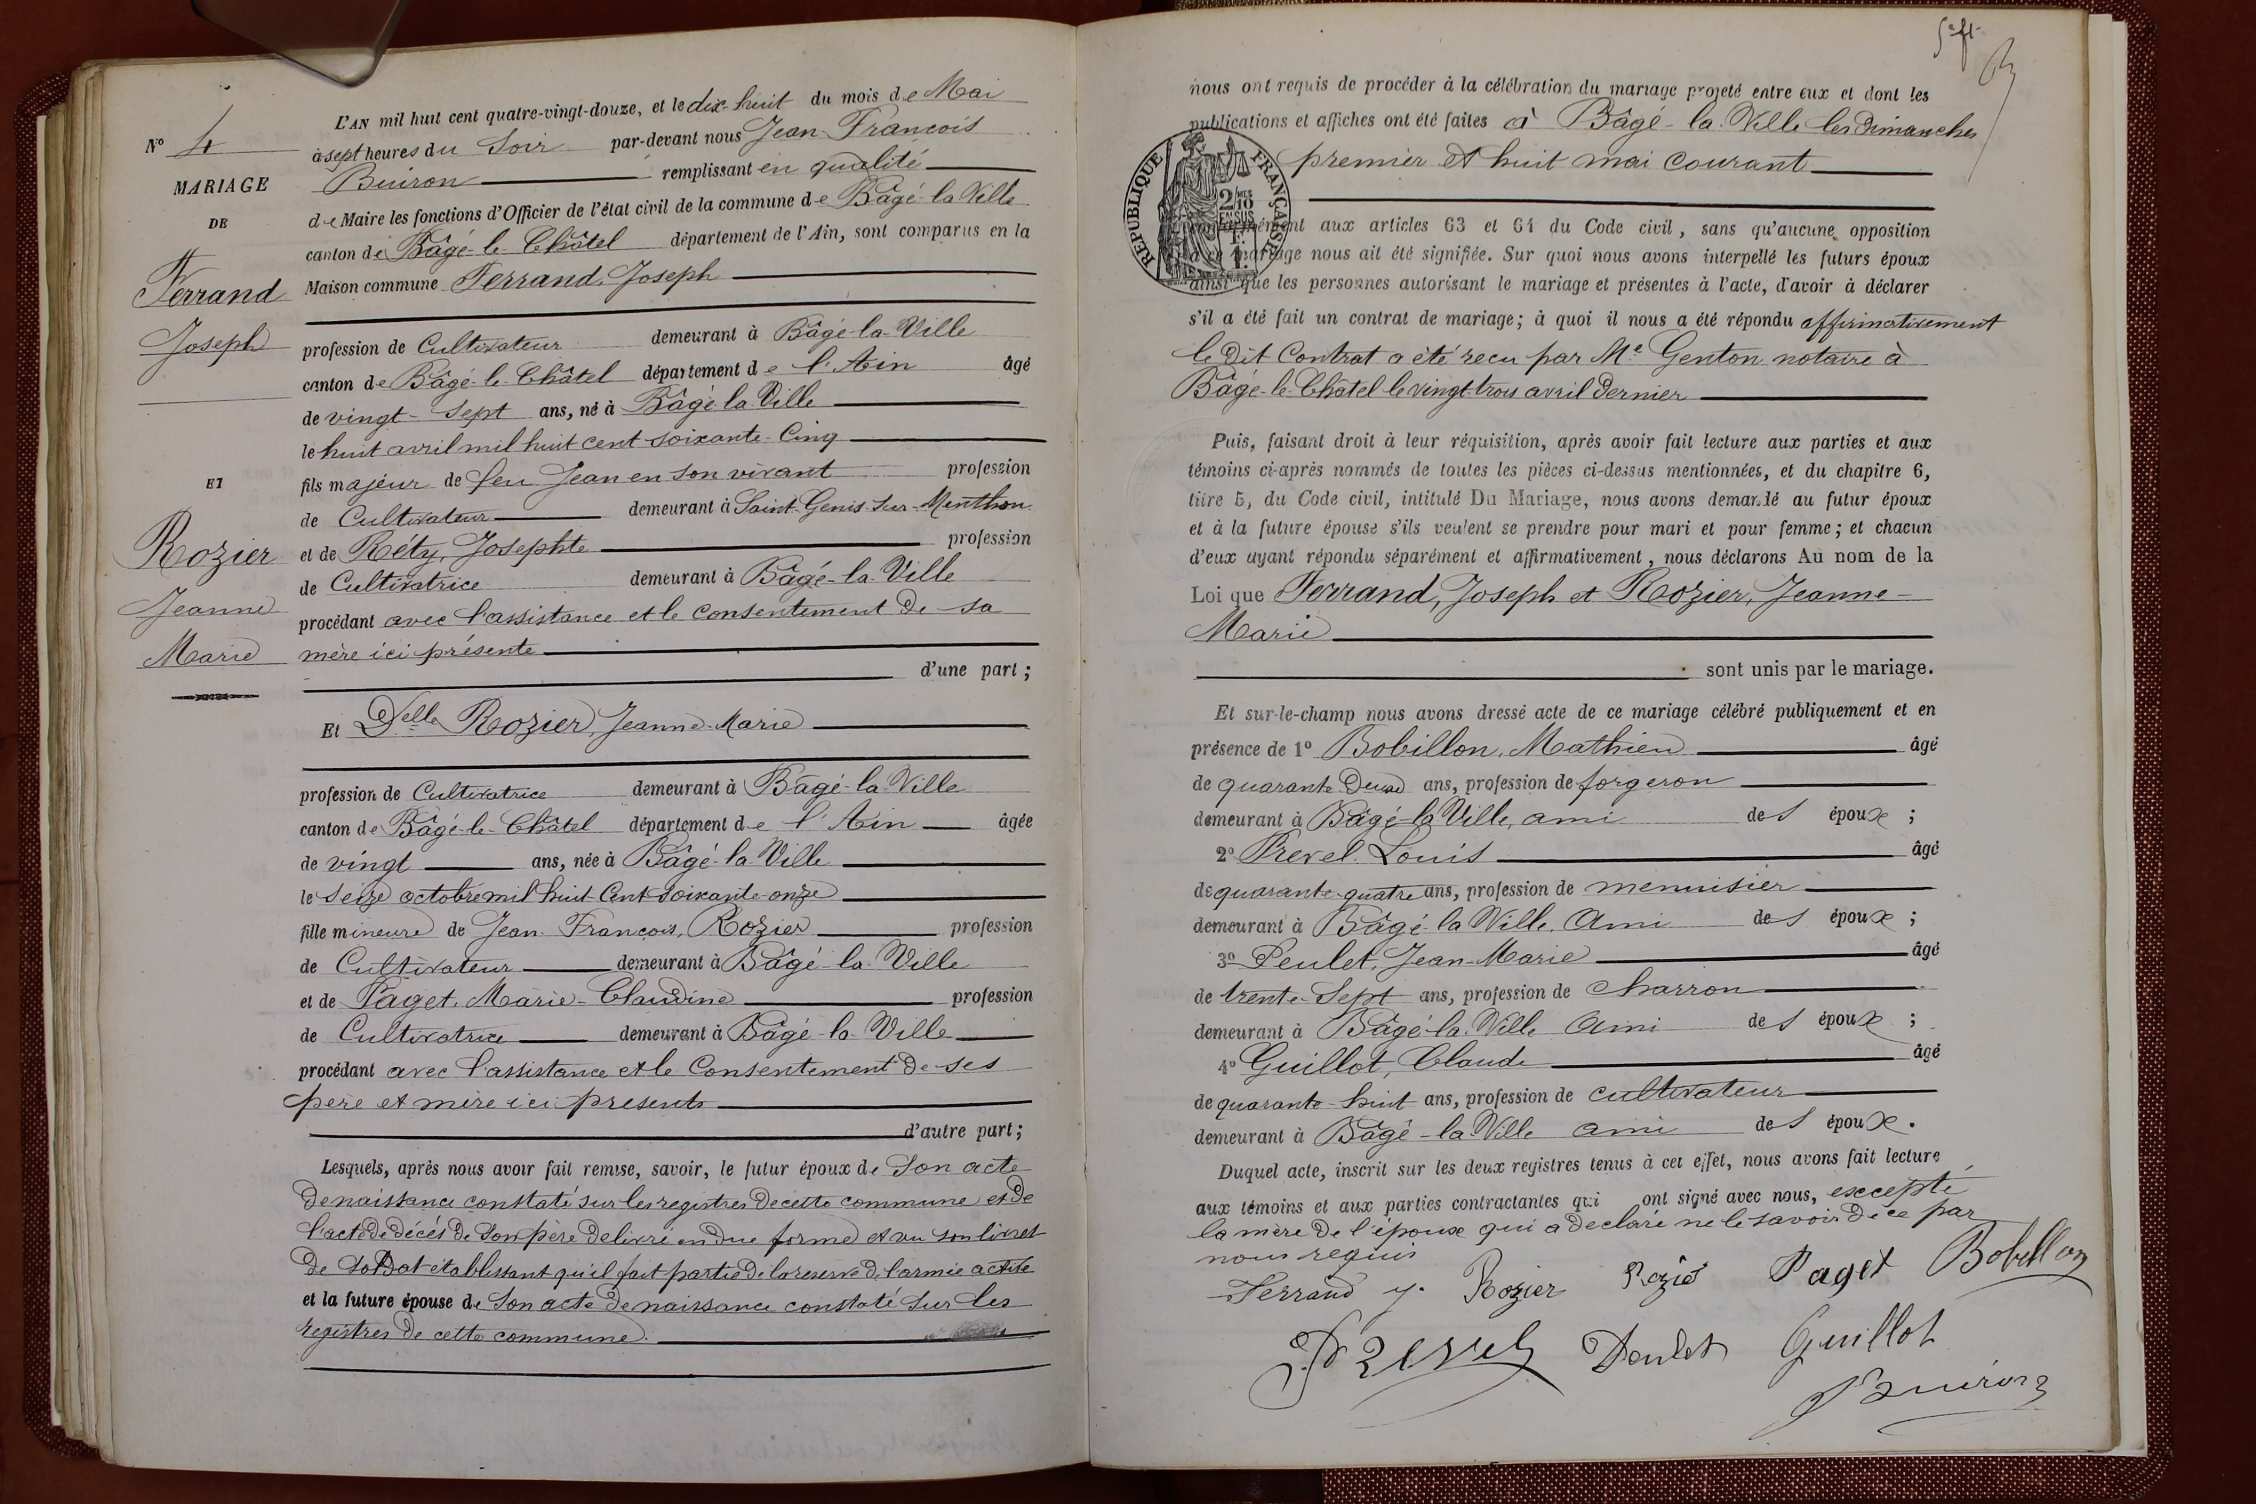 L'AN mil huit cent quatre-vingt-douze, et le dix-huit du mois de Mai
à sept heures du Soir par-devant nous Jean François
Buiron remplissant en qualité
de Maire les fonctions d'Officier de l'état civil de la commune de Bâgé-la-Ville
canton de Bâgé-le-Châtel département de l'Ain, sont comparus en la
Maison commune Ferrand, Joseph
profession de Cultivateur demeurant à Bâgé-la-Ville
canton de Bâgé-le-Châtel département de l'Ain âgé
de vingt-sept ans, né à Bâgé-la-Ville
le huit avril mil huit cent soixante-Cinq
fils majeur de feu Jean en son vivant profession
de Cultivateur demeurant à Saint-Genis-sur-Menthon
et de Réty, Josephte profession
de Cultivatrice demeurant à Bâgé-la-Ville
procédant avec l'assistance et le consentement de sa
mère ici présente
d'une part ;
Et Delle Rozier, Jeanne-Marie
profession de Cultivatrice demeurant à Bâgé-la-Ville
canton de Bâgé-le-Châtel département de l'Ain âgée
de vingt ans, née à Bâgé-la-Ville
le seize octobre mil huit Cent soixante-onze
fille mineure de Jean-François, Rozier profession
de Cultivateur demeurant à Bâgé-la-Ville
et de Paget, Marie-Claudine profession
de Cultivatrice demeurant à Bâgé-la-Ville
procédant avec l'assistance et le Consentement de ses
père et mère ici présents
d'autre part ;
Lesquels, après nous avoir fait remise, savoir, le futur époux de son acte
de naissance constaté sur les registres de cette commune et de
l'acte de décès de son père délivré en due forme et vu son livret
de soldat établissant qu'il fait partie de la reserve de l'armée active
et la future épouse de son acte de naissance constaté sur les
registres de cette commune.
No 4
MARIAGE
DE
Ferrand
Joseph
ET
Rozier
Jeanne
Marie
nous ont requis de procéder à la célébration du mariage projeté entre eux et dont les
publications et affiches ont été faites à Bâgé-la-Ville les dimanches
premier et huit mai courant
RÉPUBLIQUE FRANÇAISE
2/10
EN SUS
aux articles 63 et 64 du Code civil, sans qu'aucune opposition
à ce mariage nous ait été signifiée. Sur quoi nous avons interpellé les futurs époux
ainsi que les personnes autorisant le mariage et présentes à l'acte, d'avoir à déclarer
s'il a été fait un contrat de mariage ; à quoi il nous a été répondu affirmativement
le dit Contrat a été recu par Me Genton notaire à
Bâgé-le-Châtel le vingt-trois avril dernier
Puis, faisant droit à leur réquisition, après avoir fait lecture aux parties et aux
témoins ci-après nommés de toutes les pièces ci-dessus mentionnées, et du chapitre 6,
titre 5, du Code civil, intitulé Du Mariage, nous avons demandé au futur époux
et à la future épouse s'ils veulent se prendre pour mari et pour femme ; et chacun
d'eux ayant répondu séparément et affirmativement, nous déclarons Au nom de la
Loi que Ferrand, Joseph et Rozier, Jeanne-
Marie
sont unis par le mariage.
Et sur-le-champ nous avons dressé acte de ce mariage célébré publiquement et en
présence de 1o Bobillon, Mathieu âgé
de quarante-Deux ans, profession de forgeron
demeurant à Bâgé-la-Ville, ami des époux ;
2o Prevel Louis âgé
de quarante-quatre ans, profession de menuisier
demeurant à Bâgé-la-Ville, Ami des époux ;
3o Peulet, Jean-Marie âgé
de trente-Sept ans, profession de charron
demeurant à Bâgé-la-Ville Ami des époux ;
4o Guillot, Claude âgé
de quarante-huit ans, profession de cultivateur
demeurant à Bâgé-la-Ville ami des époux.
Duquel acte, inscrit sur les deux registres tenus à cet effet, nous avons fait lecture
aux témoins et aux parties contractantes qui ont signé avec nous, excepté
la mère de l'époux qui a declaré ne le savoir de ce par
nous requis
Ferrand J. Rozier Rozié Paget Bobillon
Prevel Peulet Guillot
Buiron